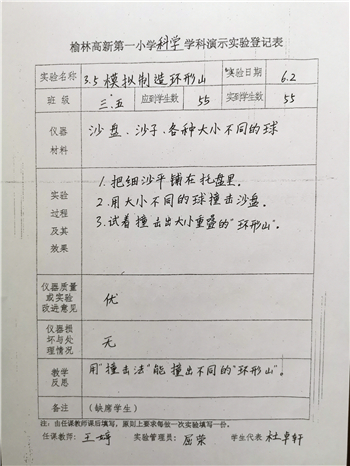 榆林高新第一小学科学学科演示实验登记表
实验名称 3.5模拟制造环形山 实验日期 6.2
班级 三.五 应到学生数 55 实到学生数 55
仪器材料 沙盘、沙子、各种大小不同的球
实验过程及其效果
1.把细沙平铺在托盘里。
2.用大小不同的球撞击沙盘。
3.试着撞击出大小重叠的"环形山"。
仪器质量或实验改进意见 优
仪器损坏与处理情况 无
教学反思 用"撞击法"能撞出不同的"环形山"。
备注 (缺席学生)
注：由任课教师课后填写，原则上要求每做一次实验填写一份。
任课教师：王婷 实验管理员：屈荣 学生代表 杜卓轩